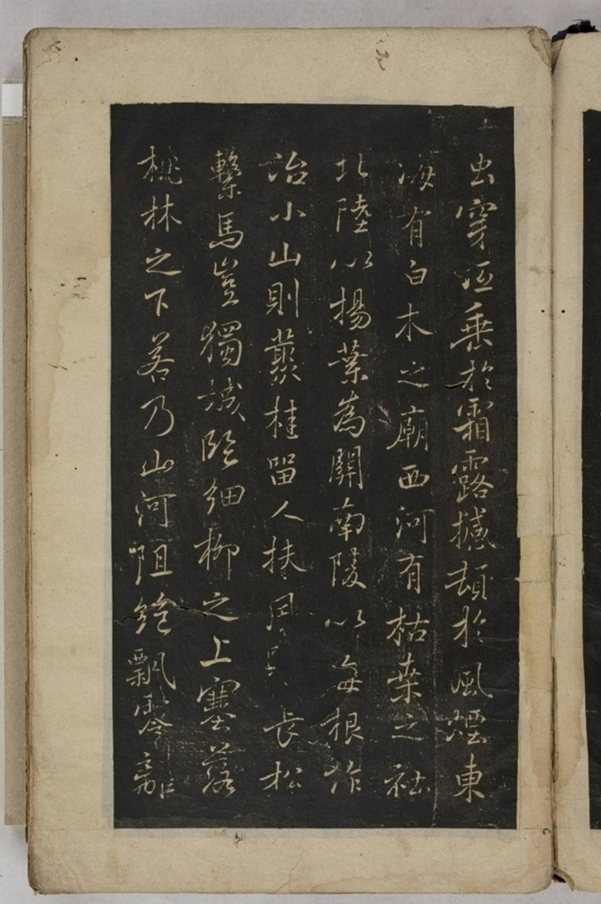 虫穿低垂於霜露撼頓於風煙東
海有白木之廟西河有枯桒之社
北陸以揚葉為關南陵以每根作
冶小山則叢桂留人扶長松
繫馬豈獨城臨細柳之上塞落
桃林之下若乃山河阻絕飄零離